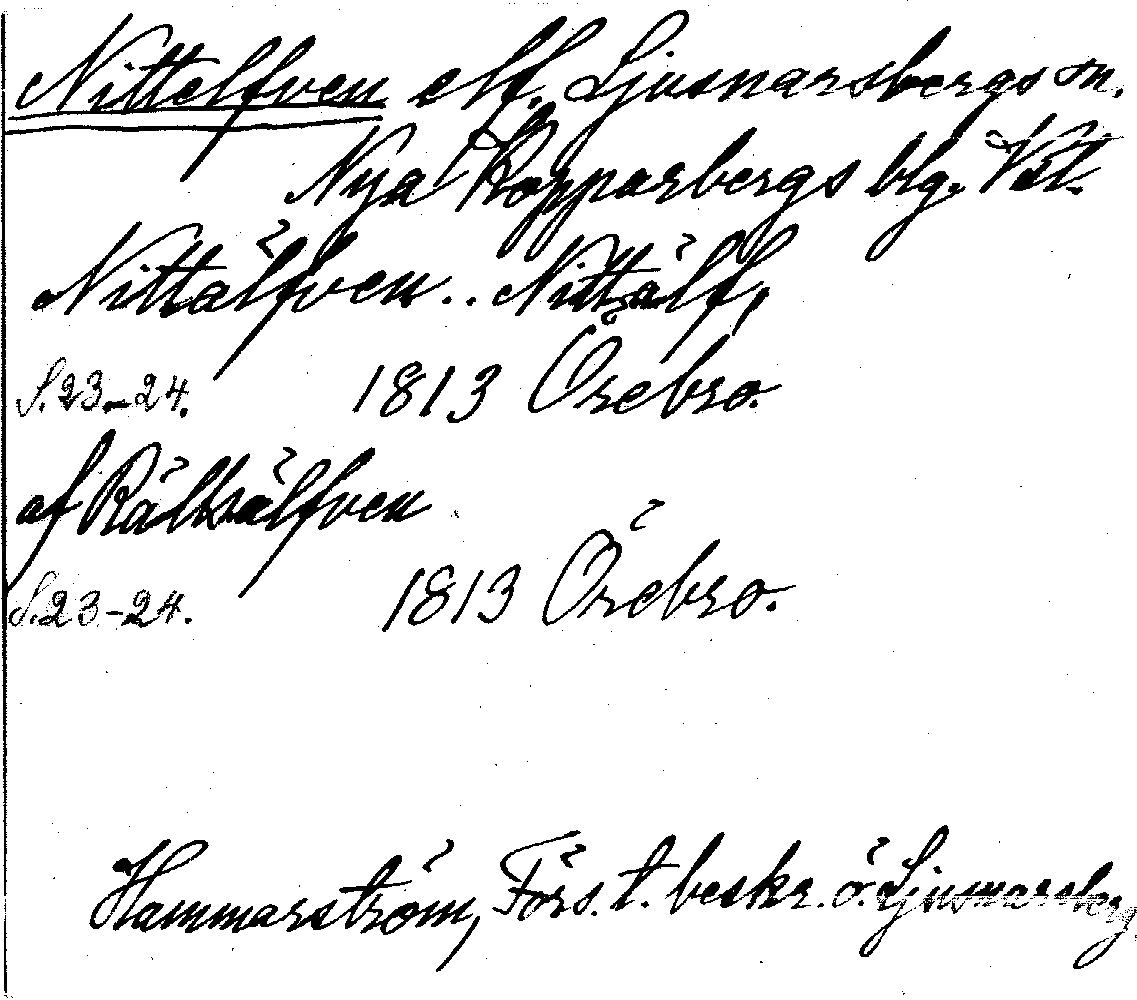 Nittelfven elf. Ljusnarsbergs sn.
Nya Kopparbergs blg. Vstl.
Nittälfven.. Nittälf,
S. 23-24. 1813 Örebro.
af Rällsälfven
S. 23-24. 1813 Örebro.
Hammarström, Förs. t. beskr. ö. Ljusnarsberg.